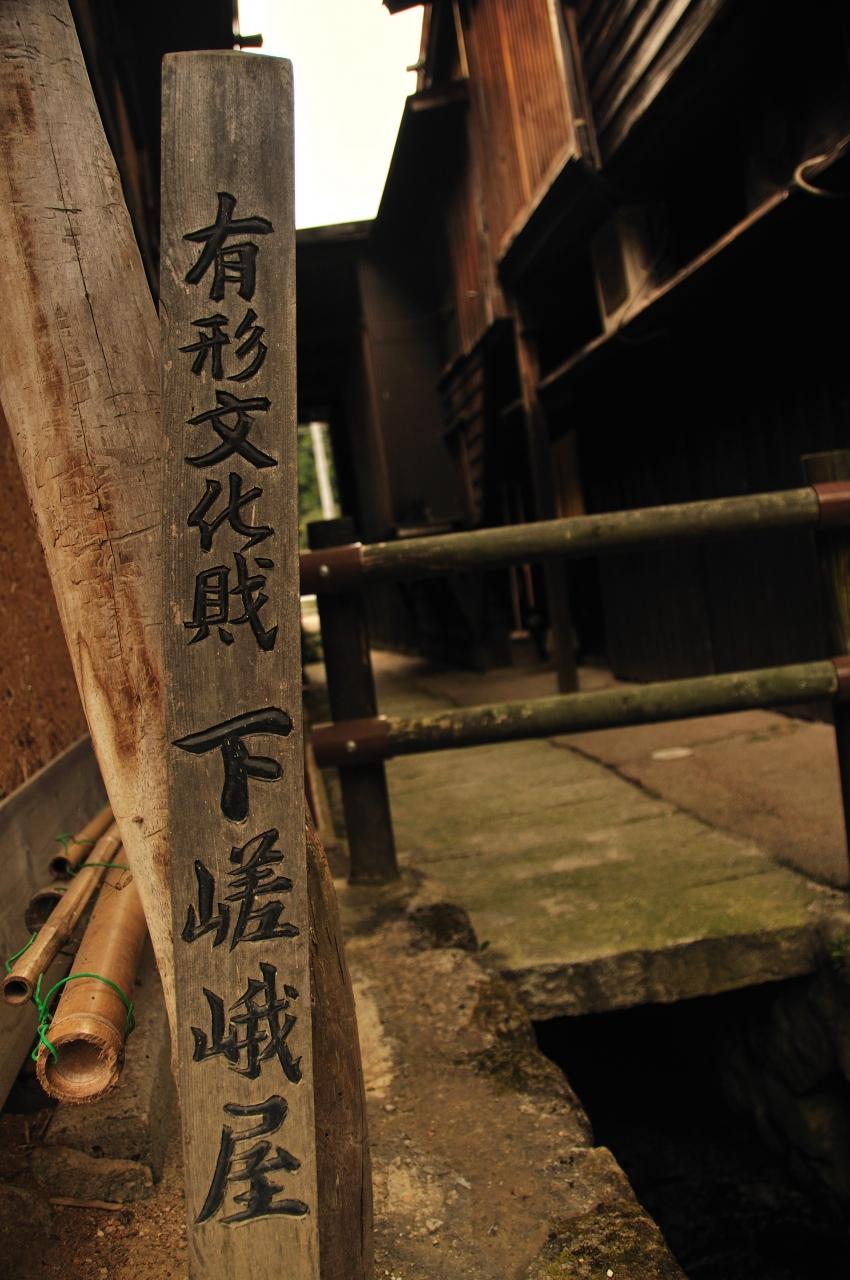 有形文化財 下嵯峨屋